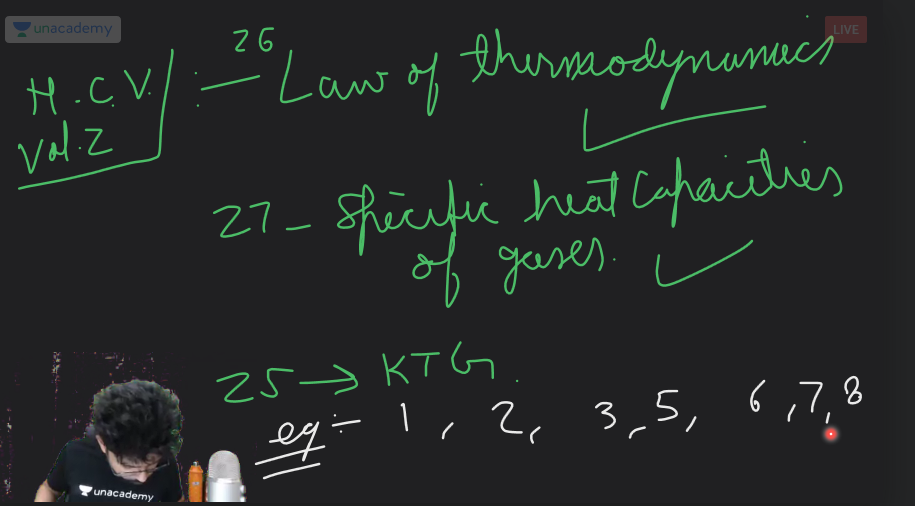 unacademy
LIVE
H.C.V. :— 26 Law of thermodynamics
Vol.2
27 - Specific heat Capacities
of gases.
25 → KTG.
eg :- 1, 2, 3, 5, 6, 7, 8
unacademy